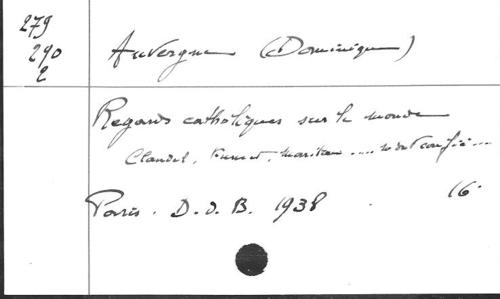 279
290
2
Auvergne (Dominique)
Regards catholiques sur le monde
Claudel, Fumet, Maritain .... m'ont confié ...
Paris. D. d. B. 1938. 16°